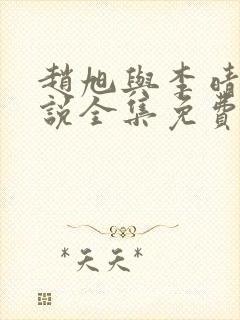 趙旭與李晴
說全集免費
*天天*